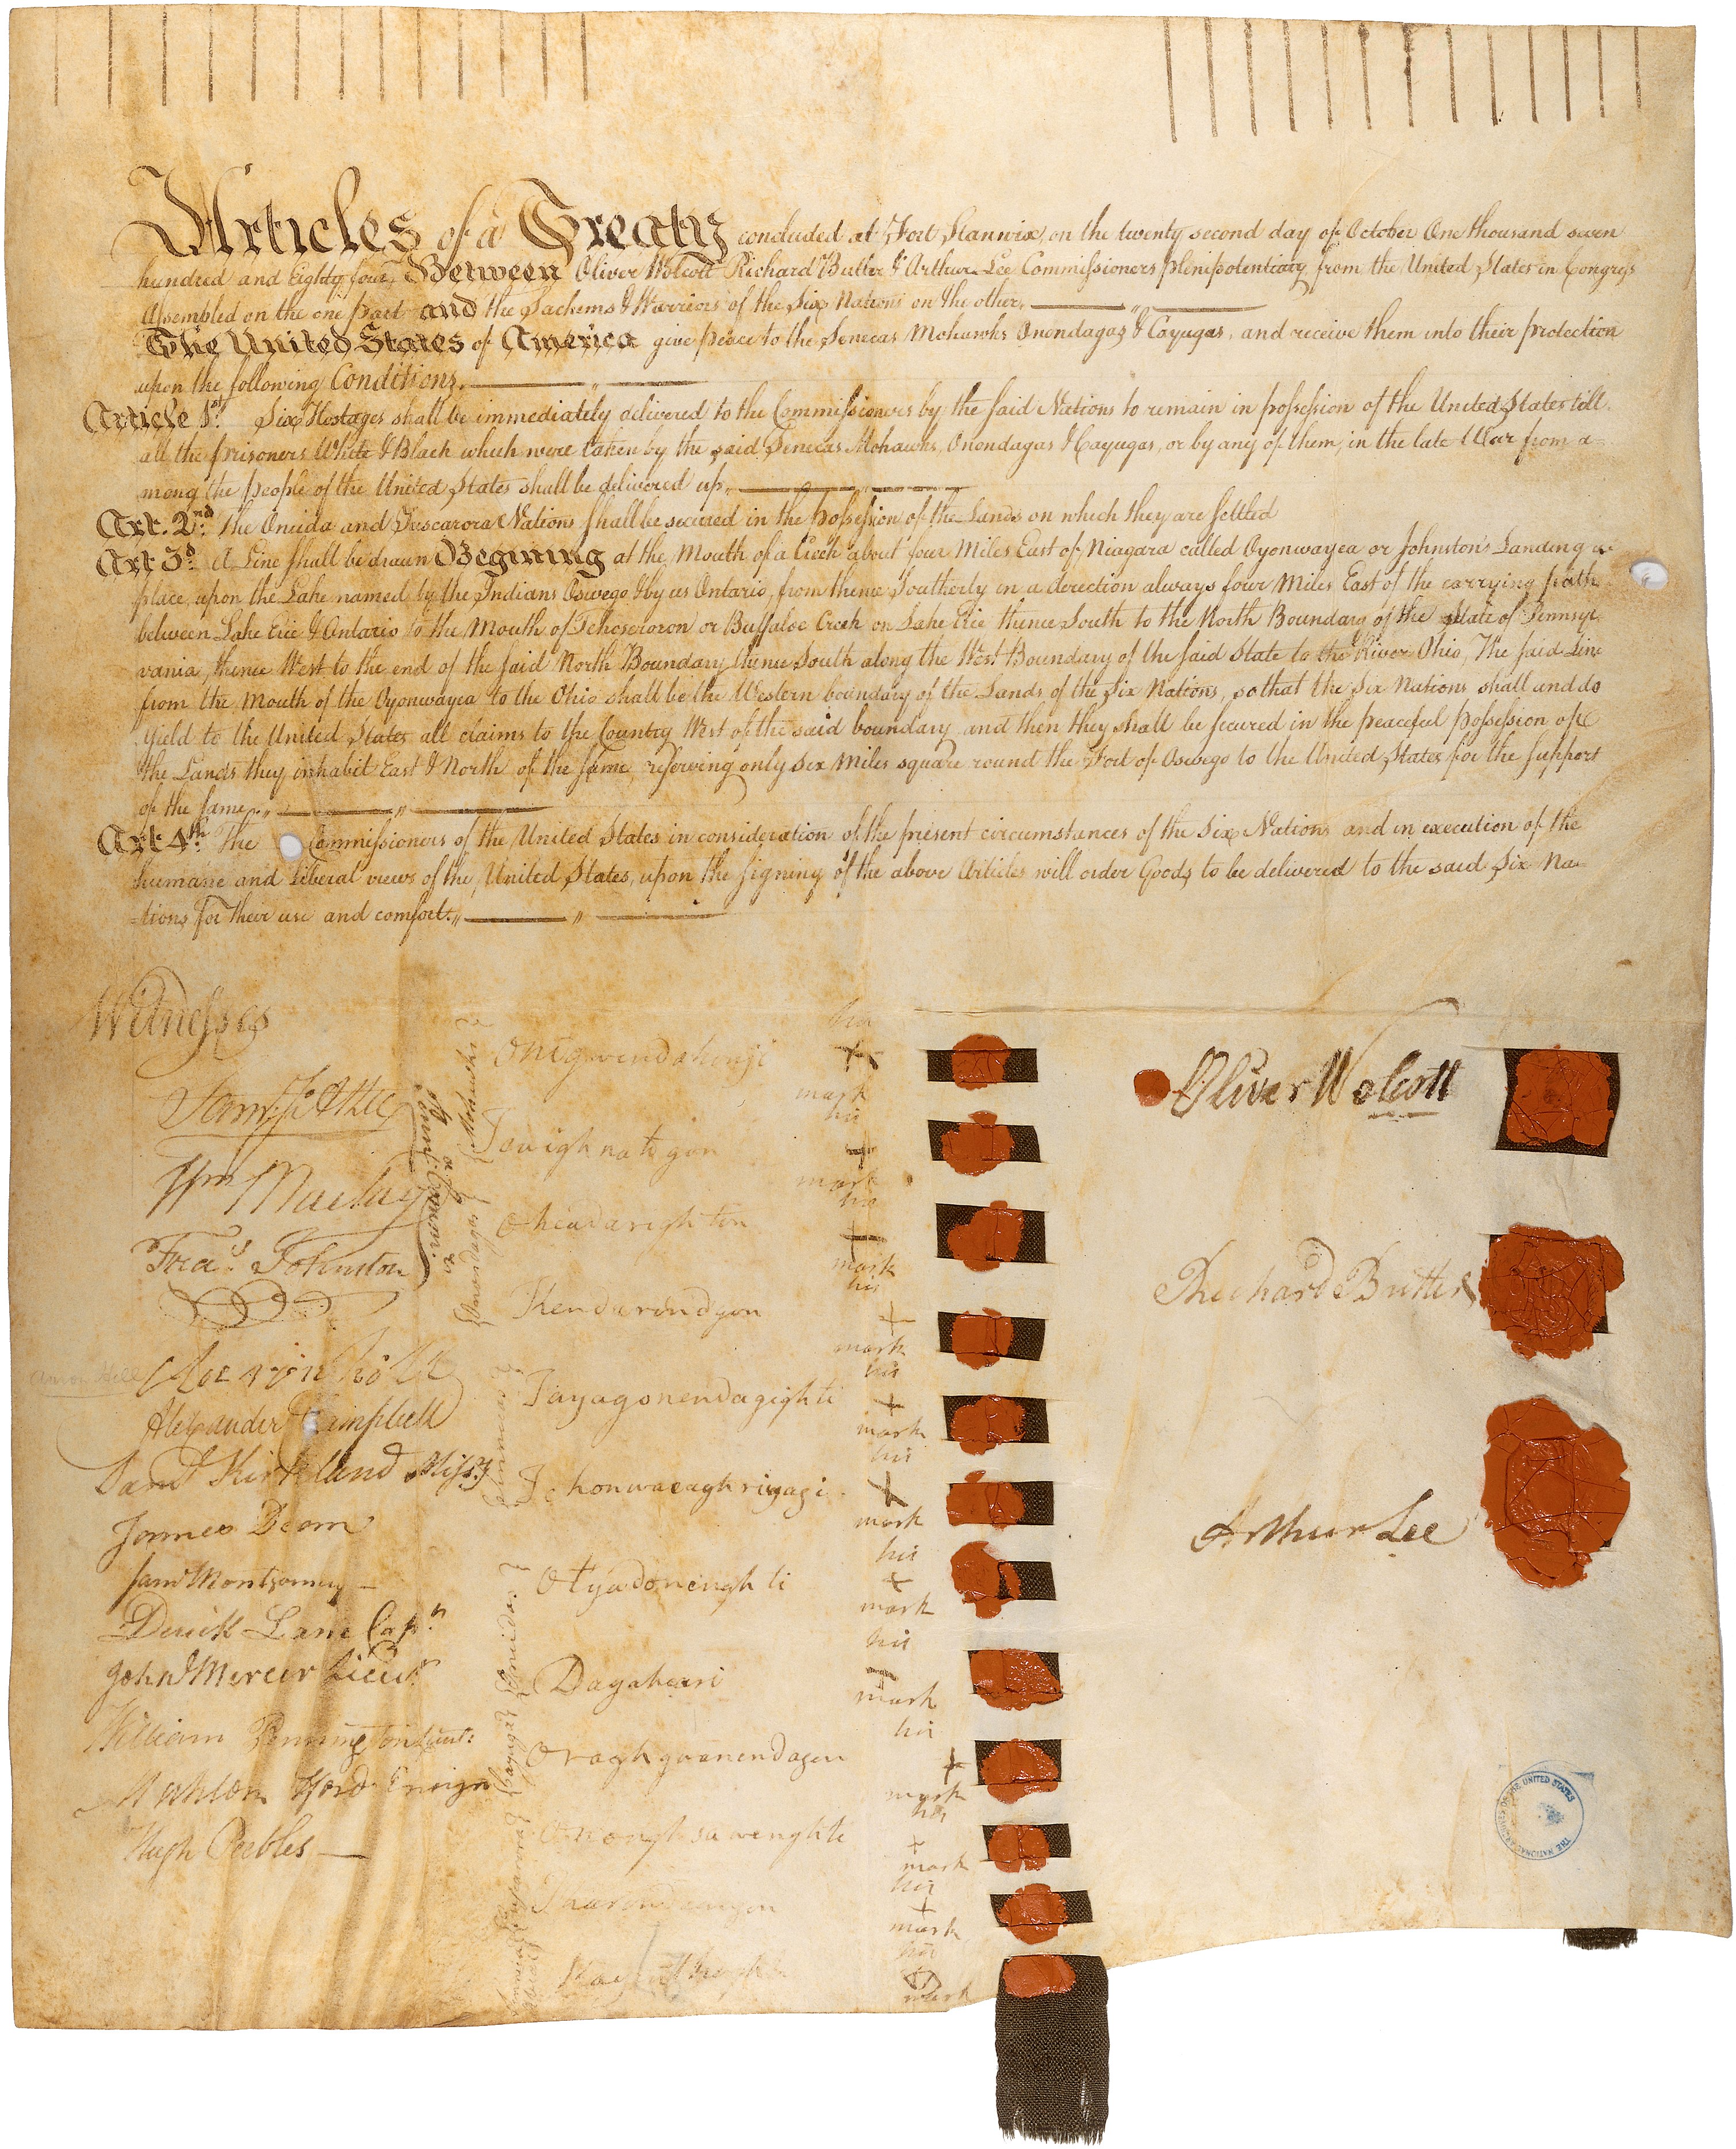 Articles of a Treaty concluded at Fort Stanwix, on the twenty second day of October One thousand seven
hundred and Eighty four, Between Oliver Wolcott Richard Butler & Arthur Lee Commissioners plenipotentiary from the United States in Congress
Assembled on the one Part and the Sachems & Warriors of the Six Nations on the other.
The United States of America give peace to the Senecas Mohawks Onondagas & Cayugas, and receive them into their protection
upon the following Conditions.
Article 1st. Six Hostages shall be immediately delivered to the Commissioners by the said Nations to remain in possession of the United States till
all the prisoners White & Black which were taken by the said Senecas Mohawks, Onondagas & Cayugas, or by any of them, in the late War from a-
mong the people of the United States shall be delivered up.
Art. 2nd. The Oneida and Tuscarora Nations shall be secured in the Possession of the Lands on which they are settled
Art 3d. A Line shall be drawn Begining at the Mouth of a Creek about four Miles East of Niagara called Oyonwayea or Johnston's Landing
place, upon the Lake named by the Indians Oswego & by us Ontario, from thence Southerly in a direction always four Miles East of the carrying path
between Lake Erie & Ontario to the Mouth of Tehoseroron or Buffaloe Creek on Lake Erie thence South to the North Boundary of the State of Pennsyl-
vania, thence West to the end of the said North Boundary thence South along the West Boundary of the said State to the River Ohio, The said Line
from the Mouth of the Oyonwayea to the Ohio shall be the Western boundary of the Lands of the Six Nations, so that the Six Nations shall and do
Yield to the United States all claims to the Country West of the said boundary and then they shall be secured in the peaceful Possession of
the Lands they inhabit East & North of the same, reserving only six Miles square round the Fort of Oswego to the United States for the support
of the same.
Art 4th. The Commissioners of the United States in consideration of the present circumstances of the Six Nations and in execution of the
humane and liberal views of the United States, upon the signing of the above Articles will order Goods to be delivered to the said Six Na-
-tions for their use and comfort.
Witnesses
Sam. J. Atlee
Wm Maclay
Fras. Johnston
Penna. Commrs.
Aaron Hill
Alexander Campbell
Saml Kirkland Missy
James Dean
Saml Montgomery
Derick Lane Capt.
John Mercer Lieut.
William Pennington Lieut.
Mahlon Hord Ensign
Hugh Peebles
Mohawks
Onogwendahonji his mark
Towighnatogon his mark
Onondagas
Oheadarighton his mark
Kendarindgon his mark
Sennecas
Tayagonendagighti his mark
Tehonwaeaghriyagi his mark
Oneidas
Otyadonenghti his mark
Dagaheari his mark
Cayugas
Oraghgoanendagen his mark
Tuscarora
Ononghsawenghti his mark
Tharondawagon his mark
his mark
Oliver Wolcott
Richard Butler
Arthur Lee
THE NATIONAL ARCHIVES OF THE UNITED STATES